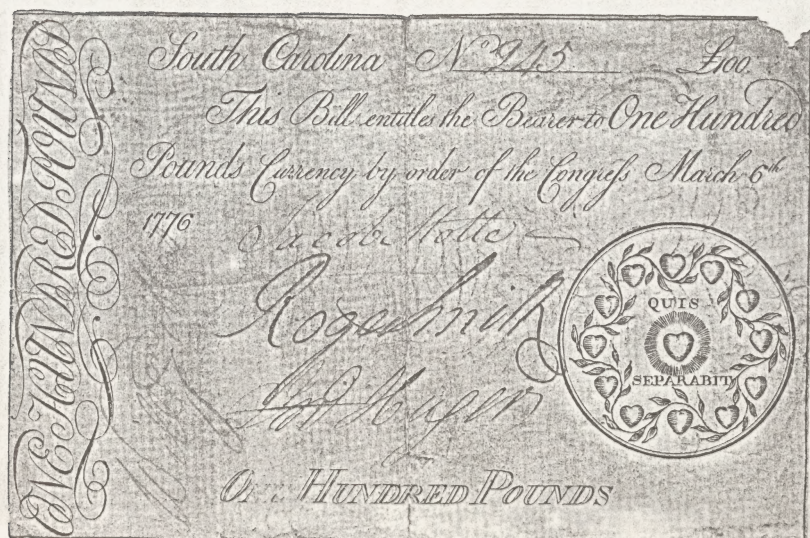 ONE HUNDRED POUNDS
South Carolina No 245 £100.
This Bill entitles the Bearer to One Hundred
Pounds Currency by order of the Congreſs March 6th
1776
Jacob Motte
Roger Smith
Huger
QUIS
SEPARABIT
ONE HUNDRED POUNDS